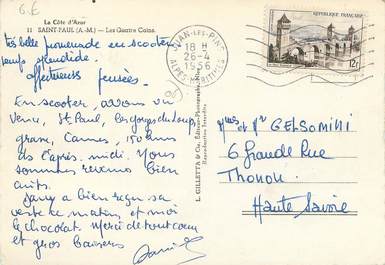 6 €
La Côte d'Azur
11 SAINT-PAUL (A.-M.) — Les Quatre Coins
très belle promenade en scooter
temps splendide.
affectueuses pensées
En scooter, avons vu
Vence, St Paul, les gorges du Loup,
grasse, Cannes, 150 kms
de l'après midi. Nous
sommes revenus bien
cuits.
Dany a bien reçu sa
veste ce matin, et moi
le chocolat. Merci de tout coeur
et gros baisers
JUAN-LES-PINS
18 H
26-4
1956
ALPES-MARITIMES
RÉPUBLIQUE FRANÇAISE
12F
L. GILLETTA & Cie, Édition-Photographe, Nice
Reproduction Interdite
Mmes et Mr GELSOMINI
6 Grande Rue
Thonon
Haute Savoie